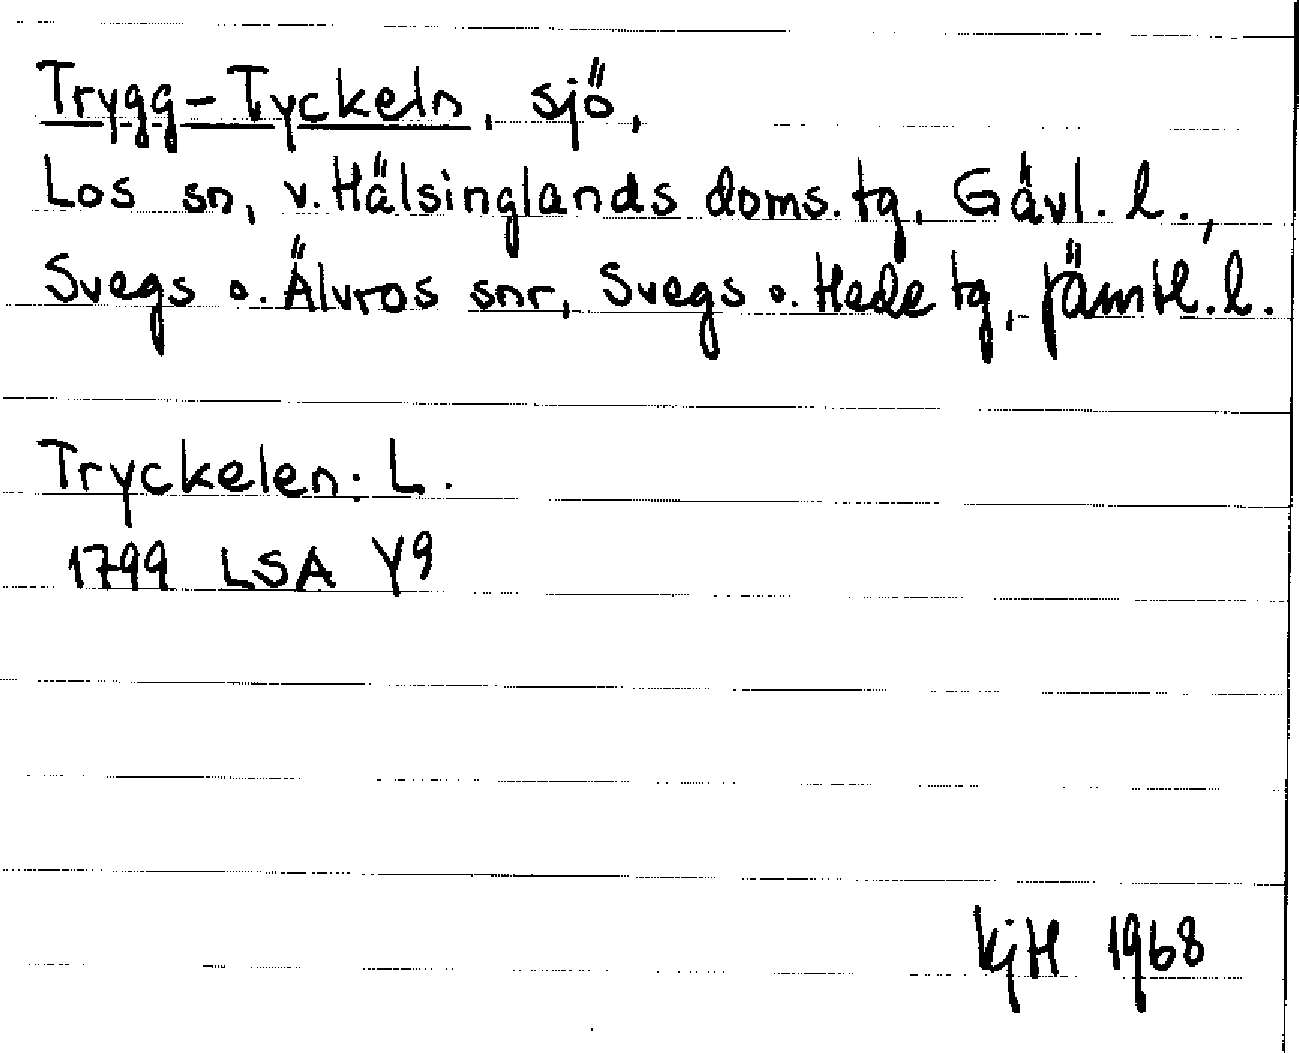 Trygg-Tyckeln, sjö,
Los sn, v. Hälsinglands doms. tg, Gävl. l.,
Svegs o. Älvros snr, Svegs o. Hede tg, Jämtl. l.
Tryckelen: L.
1799 LSA Y9
KjH 1968